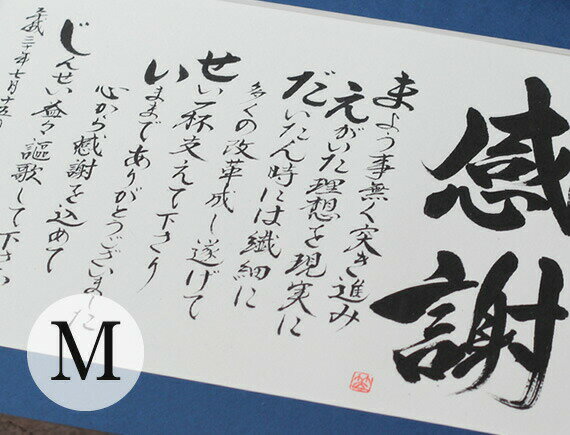 感謝
まよう事無く突き進み
えがいた理想を現実に
だいたん時には繊細に
多くの改革成し遂げて
せい一杯支えて下さり
いままでありがとうございました
心から感謝を込めて
じんせい益々謳歌して下さい
平成三十年七月十五日
M